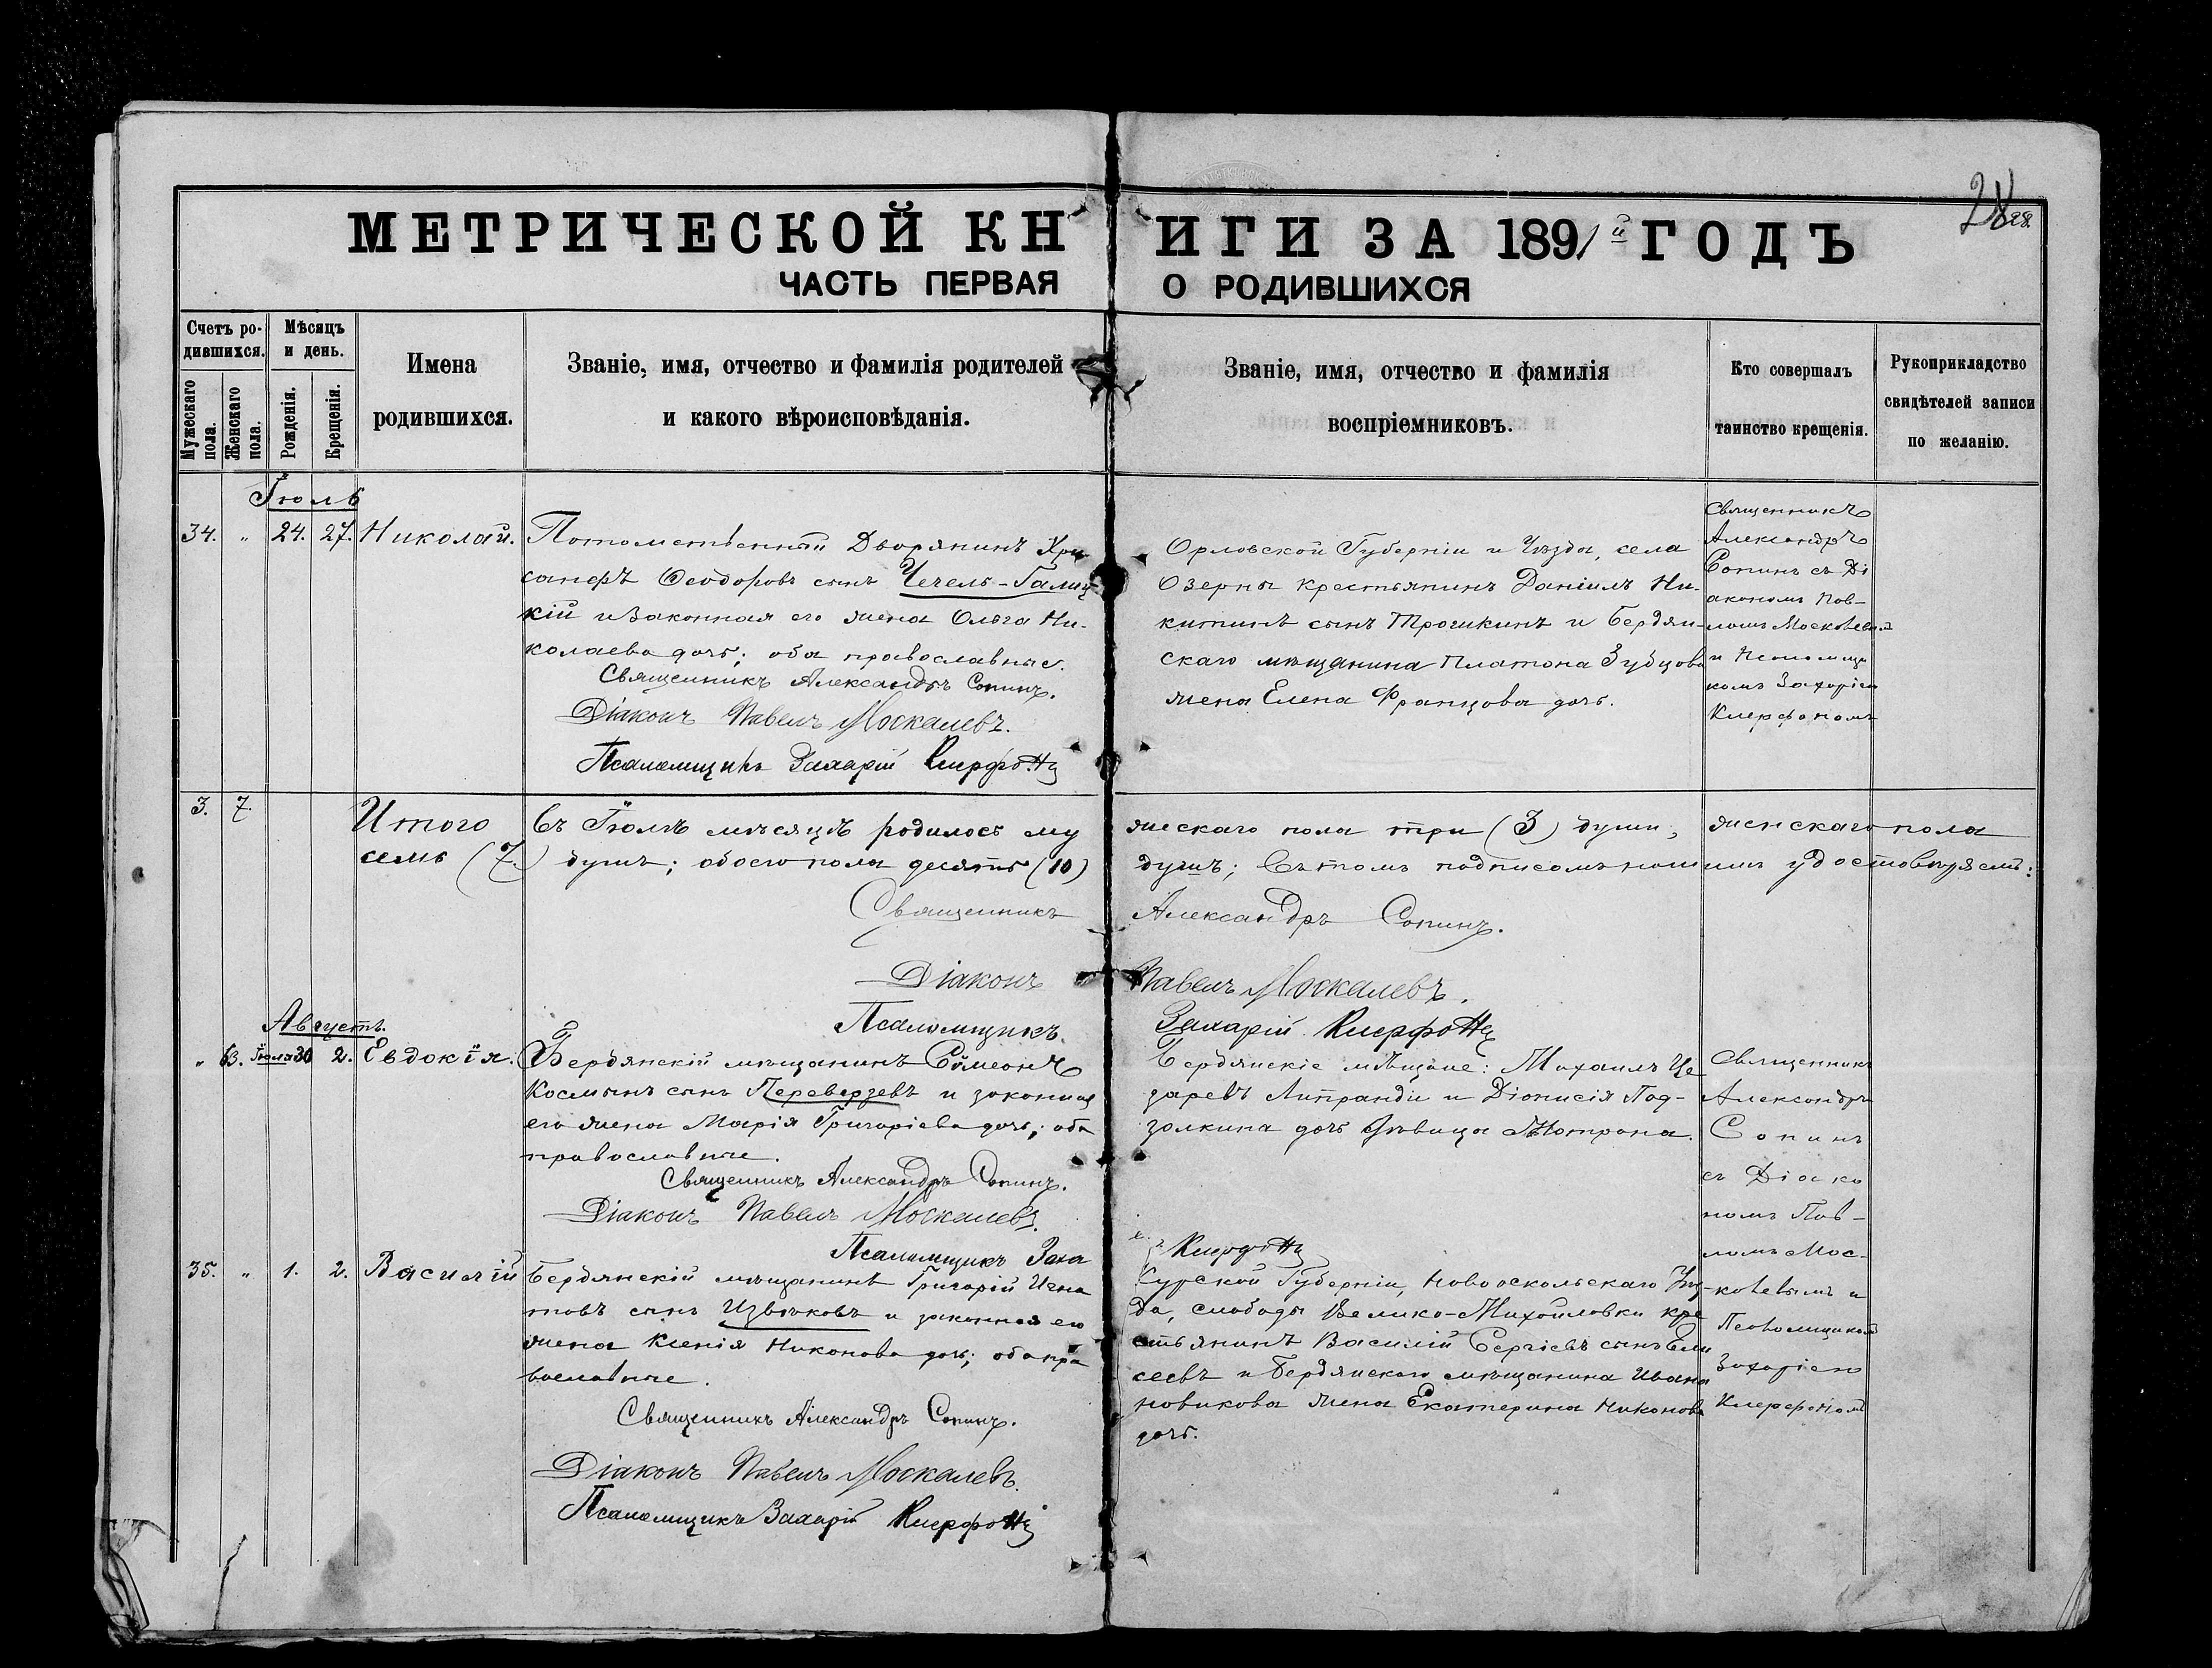 МЕТРИЧЕСКОЙ КНИГИ ЗА 1891й ГОДЪ
28
ЧАСТЬ ПЕРВАЯ О РОДИВШИХСЯ
Счетъ ро-
дившихся.
Мужескаго пола.
Женскаго пола.
Мѣсяцъ
и день.
Рожденія.
Крещенія.
Имена
родившихся.
Званіе, имя, отчество и фамилія родителей
и какого вѣроисповѣданія.
Званіе, имя, отчество и фамилія
воспріемниковъ.
Кто совершалъ
таинство крещенія.
Рукоприкладство
свидѣтелей записи
по желанію.
Іюль
34. " 24. 27. Николай.
Потомственный Дворянинъ Хри-
санфъ Ѳеодоровъ сынъ Чечель-Галиц-
кій и законная его жена Ольга Ни-
колаева дочь; оба православные.
Священникъ Александръ Сопинъ.
Діаконъ Павелъ Москалевъ.
Псаломщикъ Захарій
Орловской Губерніи и Уѣзда, села
Озерны крестьянинъ Даніилъ Ни-
китинъ сынъ Трошкинъ и Бердян-
скаго мѣщанина Платона Зубцова
жена Елена Францова дочь.
Священникъ
Александръ
Сопинъ съ Ді
акономъ Пав-
ломъ Москалевымъ
и Псаломщи
комъ Захаріем
3. 7.
Итого въ Іюлѣ мѣсяцѣ родилось мужескаго пола три (3) души, женскаго пола
семь (7.) душъ; обоего пола десять (10) душъ; Въ томъ подписомъ нашимъ удостовѣряемъ:
Священникъ Александръ Сопинъ.
Діаконъ Павелъ Москалевъ.
Псаломщикъ Захарій
Августъ.
" 63. Іюля 30 2. Евдокія.
Бердянскій мѣщанинъ Сѵмеонъ
Космынъ сынъ Переверзевъ и законная
его жена Марія Григоріева дочь; оба
православные.
Священникъ Александръ Сопинъ.
Діаконъ Павелъ Москалевъ.
Псаломщикъ Заха
Бердянскіе мѣщане: Михаилъ Це
заревъ Липранди и Діонисія Под-
золкина дочь дѣвица Матрона.
Священникъ
Александръ
Сопинъ
съ Діако
номъ Пав-
ломъ Мос-
калевымъ и
Псаломщикомъ
Захаріем
35. " 1. 2. Василій
Бердянскій мѣщанинъ Григорій Игна
товъ сынъ Извѣковъ и законная его
жена Ксенія Никонова дочь; оба пра
вославные.
Священникъ Александръ Сопинъ.
Діаконъ Павелъ Москалевъ.
Псаломщикъ Захарій
Курской Губерніи, Новооскольскаго Уѣз-
да, слободы Велико-Михайловки кре
стьянинъ Василій Сергіевъ сынъ Ели
сеевъ и Бердянскаго мѣщанина Ивана
Новикова жена Екатерина Никонова
дочь.